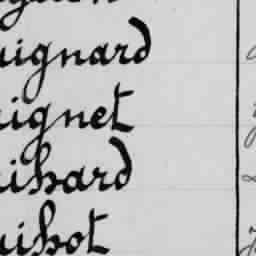 uignard
uignet
uishard
uishot